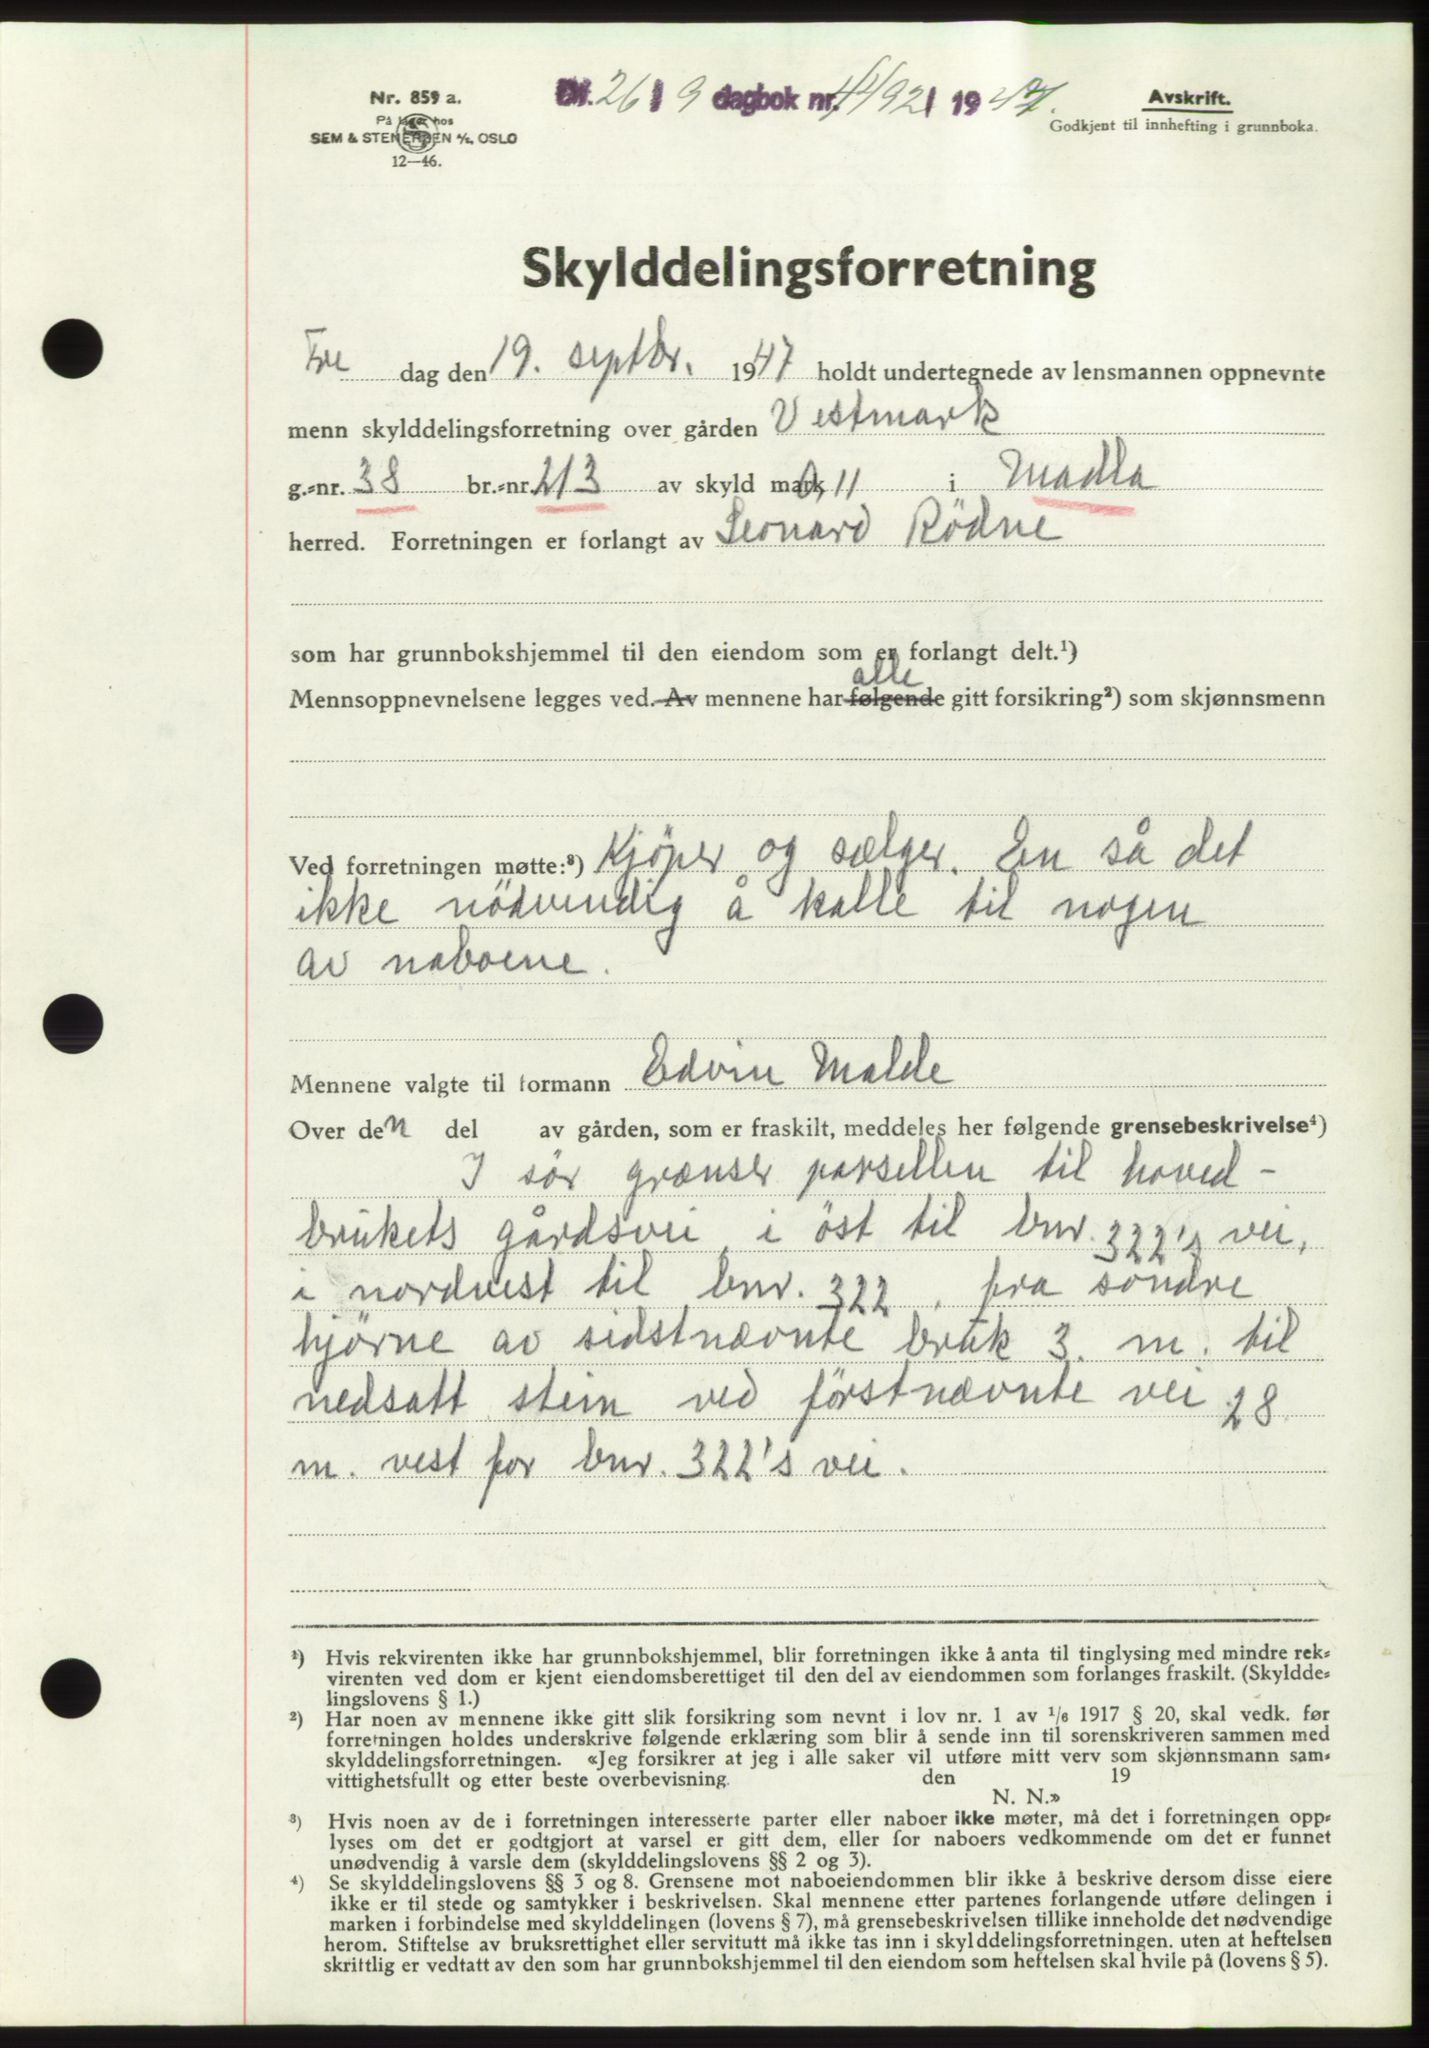 Nr. 859 a.
På lager hos
SEM & STENERSEN A/S, OSLO
12—46.
26/9 dagbok nr. 4492/1947.
Avskrift.
Godkjent til innhefting i grunnboka.
Skylddelingsforretning
Fre dag den 19. septbr. 1947 holdt undertegnede av lensmannen oppnevnte
menn skylddelingsforretning over gården Vestmark
g.-nr. 38 br.-nr. 213 av skyld mark 0,11 i Madla
herred. Forretningen er forlangt av Leonard Rödne
som har grunnbokshjemmel til den eiendom som er forlangt delt.¹)
alle
Mennsoppnevnelsene legges ved. Av mennene har følgende gitt forsikring²) som skjønnsmenn
Ved forretningen møtte:³) Kjöper og sælger. En så det
ikke nödvendig å kalle til nogen
av naboene.
Mennene valgte til formann Edvin Malde
Over den del av gården, som er fraskilt, meddeles her følgende grensebeskrivelse⁴)
I sör grænser parsellen til hoved-
brukets gårdsvei, i öst til bnr. 322's vei,
i nordvest til bnr. 322, fra söndre
hjörne av sidstnævnte bruk 3. m. til
nedsatt stein ved förstnævnte vei 28
m. vest for bnr. 322's vei.
¹) Hvis rekvirenten ikke har grunnbokshjemmel, blir forretningen ikke å anta til tinglysing med mindre rek-
virenten ved dom er kjent eiendomsberettiget til den del av eiendommen som forlanges fraskilt. (Skyldde-
lingslovens § 1.)
²) Har noen av mennene ikke gitt slik forsikring som nevnt i lov nr. 1 av 1/6 1917 § 20, skal vedk. før
forretningen holdes underskrive følgende erklæring som blir å sende inn til sorenskriveren sammen med
skylddelingsforretningen. «Jeg forsikrer at jeg i alle saker vil utføre mitt verv som skjønnsmann sam-
vittighetsfullt og etter beste overbevisning. den 19
N. N.»
³) Hvis noen av de i forretningen interesserte parter eller naboer ikke møter, må det i forretningen opp-
lyses om det er godtgjort at varsel er gitt dem, eller for naboers vedkommende om det er funnet
unødvendig å varsle dem (skylddelingslovens §§ 2 og 3).
⁴) Se skylddelingslovens §§ 3 og 8. Grensene mot naboeiendommen blir ikke å beskrive dersom disse eiere
ikke er til stede og samtykker i beskrivelsen. Skal mennene etter partenes forlangende utføre delingen i
marken i forbindelse med skylddelingen (lovens § 7), må grensebeskrivelsen tillike inneholde det nødvendige
herom. Stiftelse av bruksrettighet eller servitutt må ikke tas inn i skylddelingsforretningen. uten at heftelsen
skriftlig er vedtatt av den som har grunnbokshjemmel til den eiendom som heftelsen skal hvile på (lovens § 5).